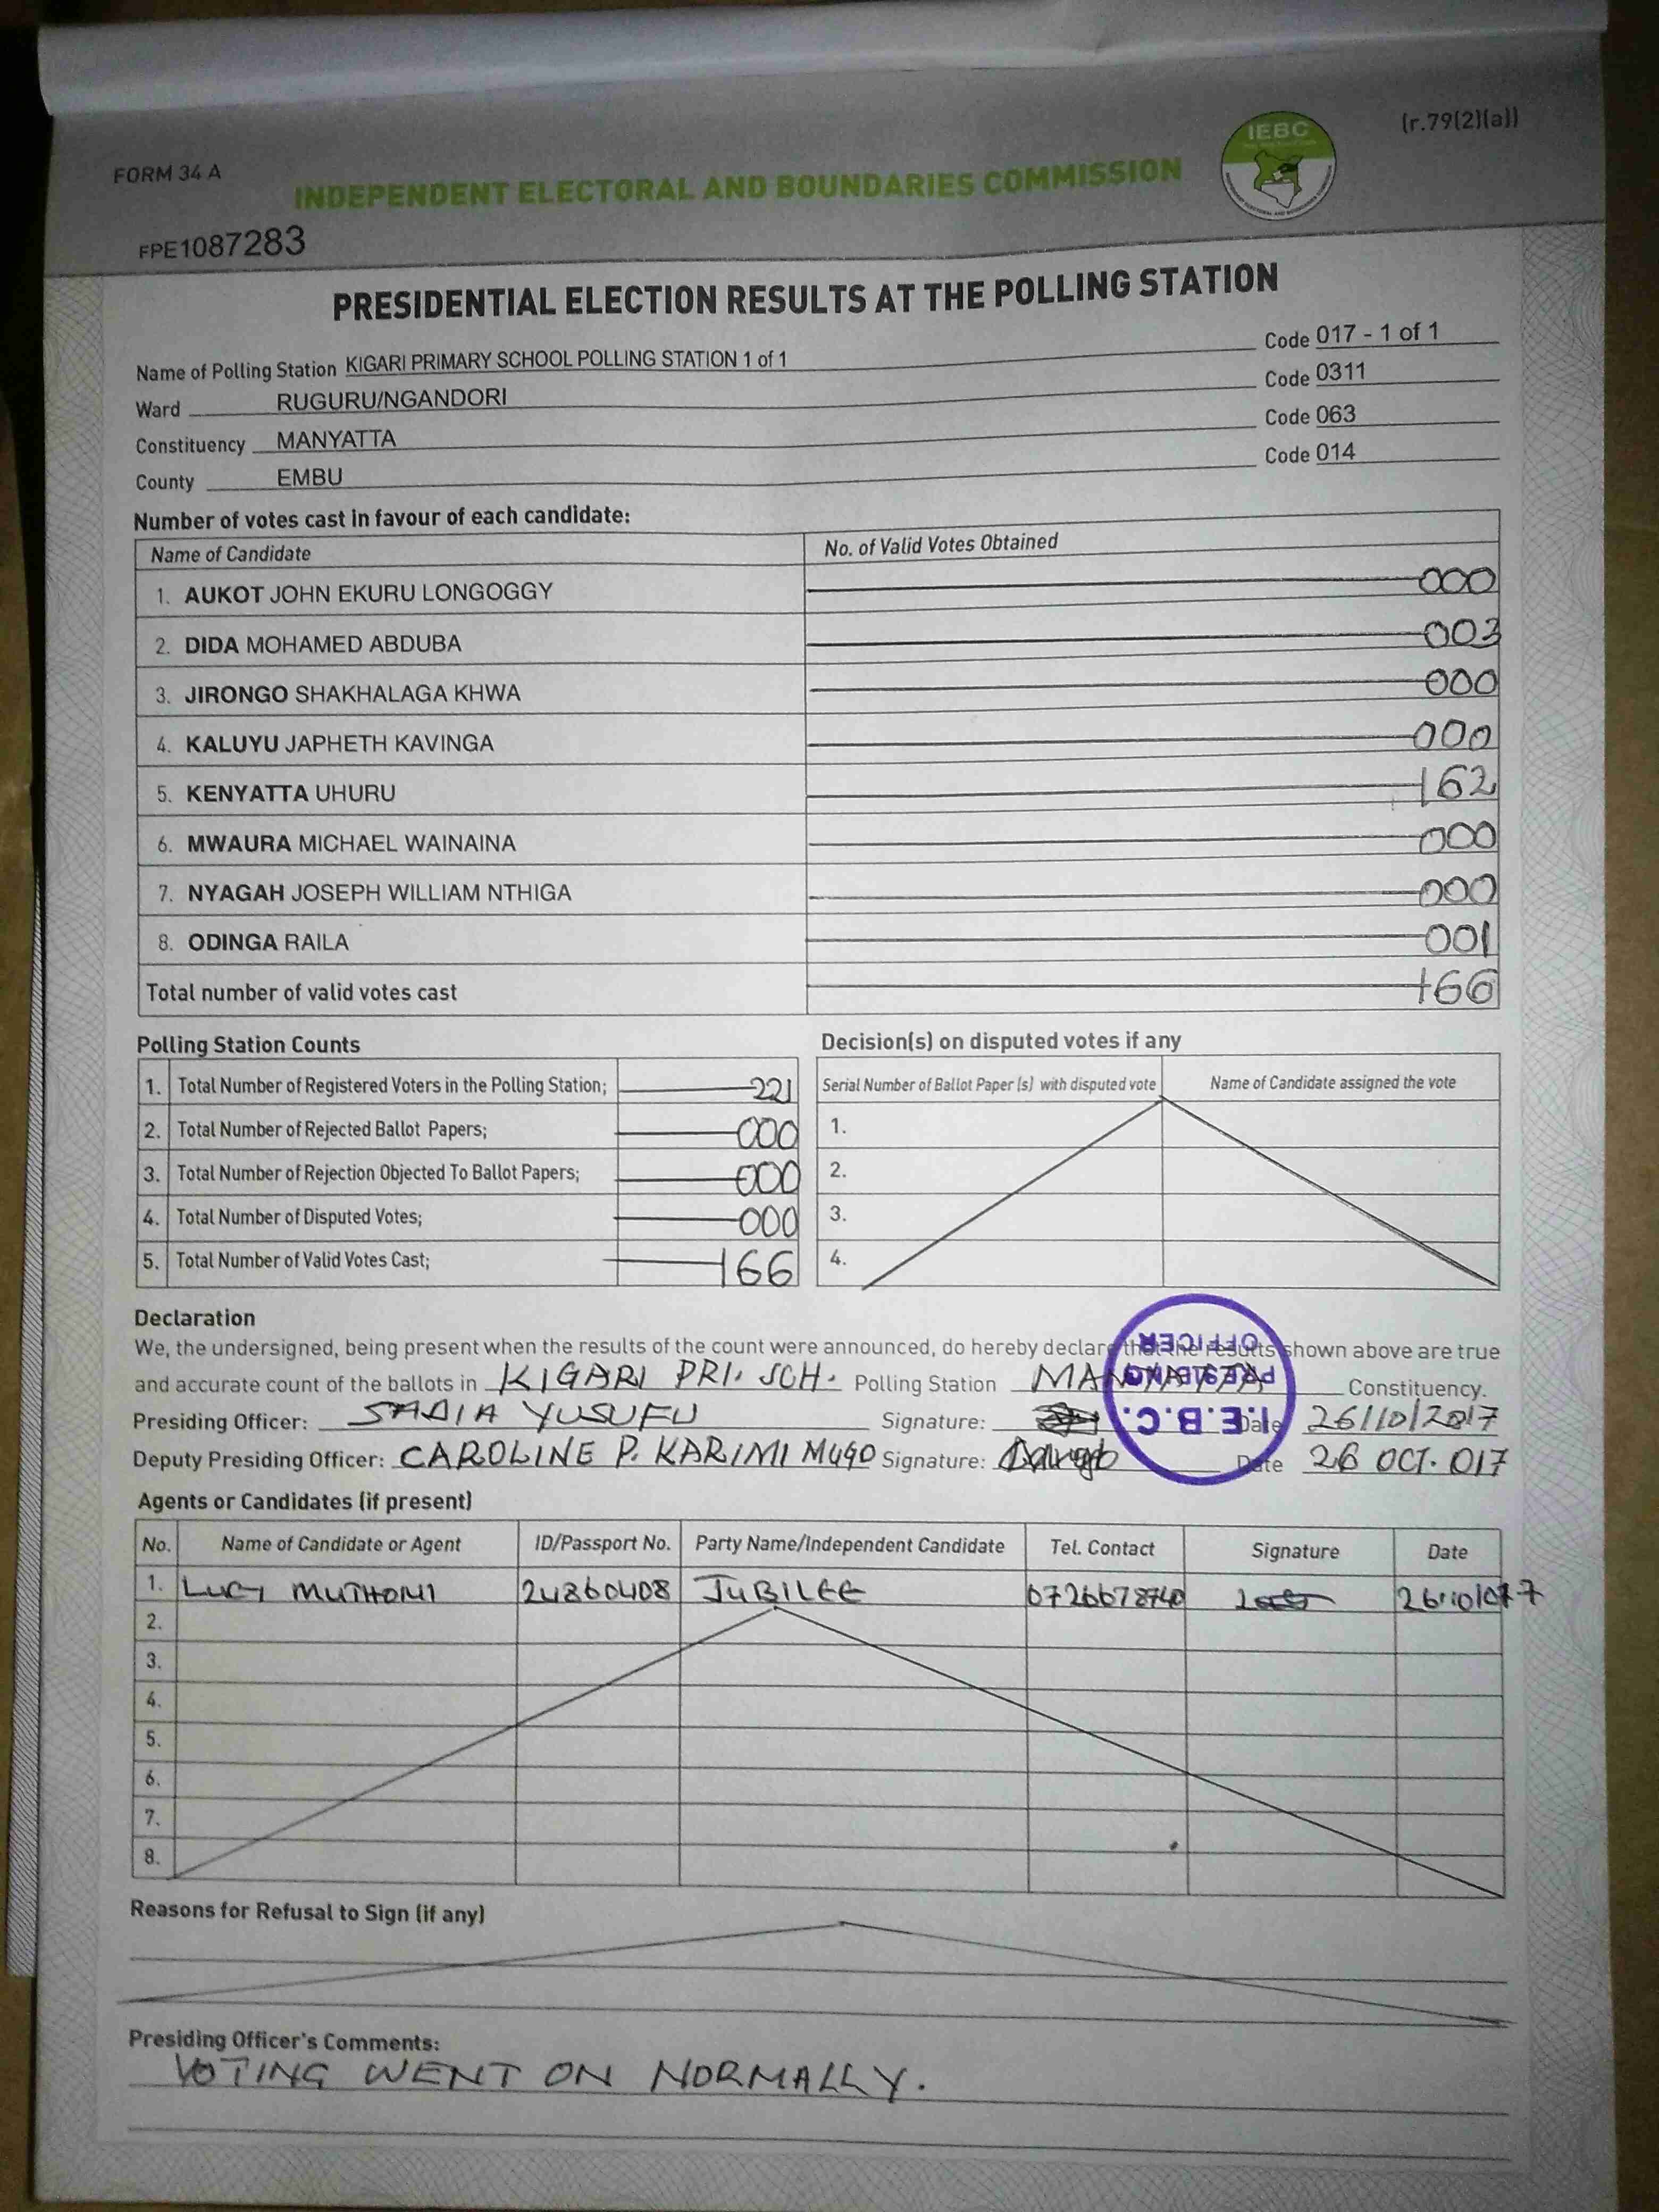 (r.79(2)(a))
IEBC
FORM 34 A
INDEPENDENT ELECTORAL AND BOUNDARIES COMMISSION
FPE1087283
PRESIDENTIAL ELECTION RESULTS AT THE POLLING STATION
Name of Polling Station KIGARI PRIMARY SCHOOL POLLING STATION 1 of 1 Code 017 - 1 of 1
Ward RUGURU/NGANDORI Code 0311
Constituency MANYATTA Code 063
County EMBU Code 014
Number of votes cast in favour of each candidate:
Name of Candidate No. of Valid Votes Obtained
1. AUKOT JOHN EKURU LONGOGGY 000
2. DIDA MOHAMED ABDUBA 003
3. JIRONGO SHAKHALAGA KHWA 000
4. KALUYU JAPHETH KAVINGA 000
5. KENYATTA UHURU 162
6. MWAURA MICHAEL WAINAINA 000
7. NYAGAH JOSEPH WILLIAM NTHIGA 000
8. ODINGA RAILA 001
Total number of valid votes cast 166
Polling Station Counts
1. Total Number of Registered Voters in the Polling Station; 221
2. Total Number of Rejected Ballot Papers; 000
3. Total Number of Rejection Objected To Ballot Papers; 000
4. Total Number of Disputed Votes; 000
5. Total Number of Valid Votes Cast; 166
Decision(s) on disputed votes if any
Serial Number of Ballot Paper (s) with disputed vote Name of Candidate assigned the vote
1.
2.
3.
4.
Declaration
We, the undersigned, being present when the results of the count were announced, do hereby declare that the results shown above are true
and accurate count of the ballots in KIGARI PRI. SCH. Polling Station MANYATTA Constituency.
Presiding Officer: SADIA YUSUFU Signature: Date 26/10/2017
Deputy Presiding Officer: CAROLINE P. KARIMI MUGO Signature: Date 26 OCT. 017
I.E.B.C.
PRESIDING
OFFICER
Agents or Candidates (if present)
No. Name of Candidate or Agent ID/Passport No. Party Name/Independent Candidate Tel. Contact Signature Date
1. LUCY MUTHONI 24860408 JUBILEE 0726678740
2.
3.
4.
5.
6.
7.
8.
Reasons for Refusal to Sign (if any)
Presiding Officer's Comments:
VOTING WENT ON NORMALLY.